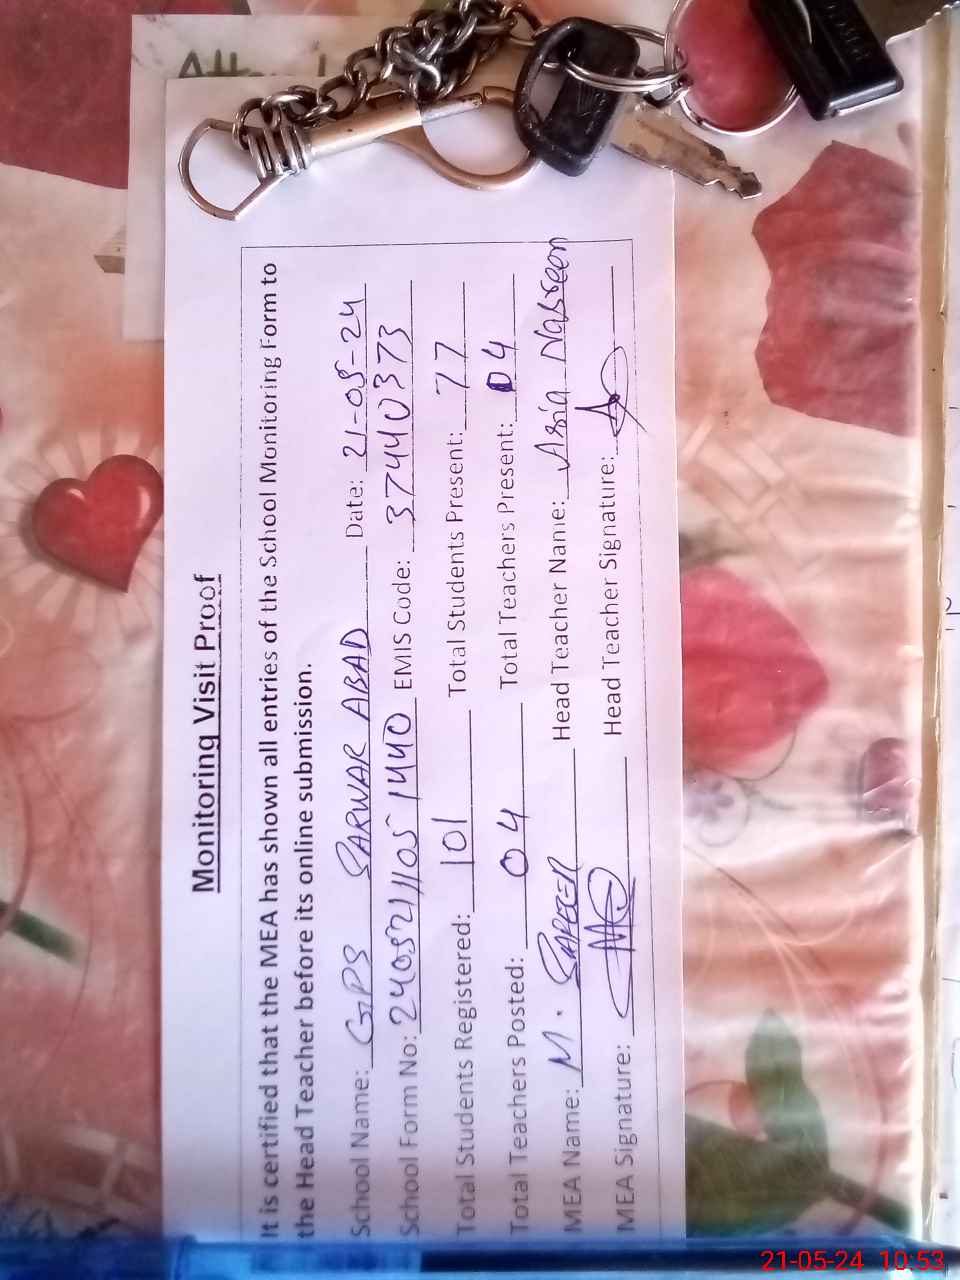 Monitoring Visit Proof
It is certified that the MEA has shown all entries of the School Monitoring Form to
the Head Teacher before its online submission.
School Name: GPS SARWAR ABAD Date: 21-05-24
School Form No: 2405211105 1440 EMIS Code: 37440373
Total Students Registered: 101 Total Students Present: 77
Total Teachers Posted: 04 Total Teachers Present: 04
MEA Name: M. Head Teacher Name: Asia Nasreen
MEA Signature: Head Teacher Signature:
21-05-24 10:53